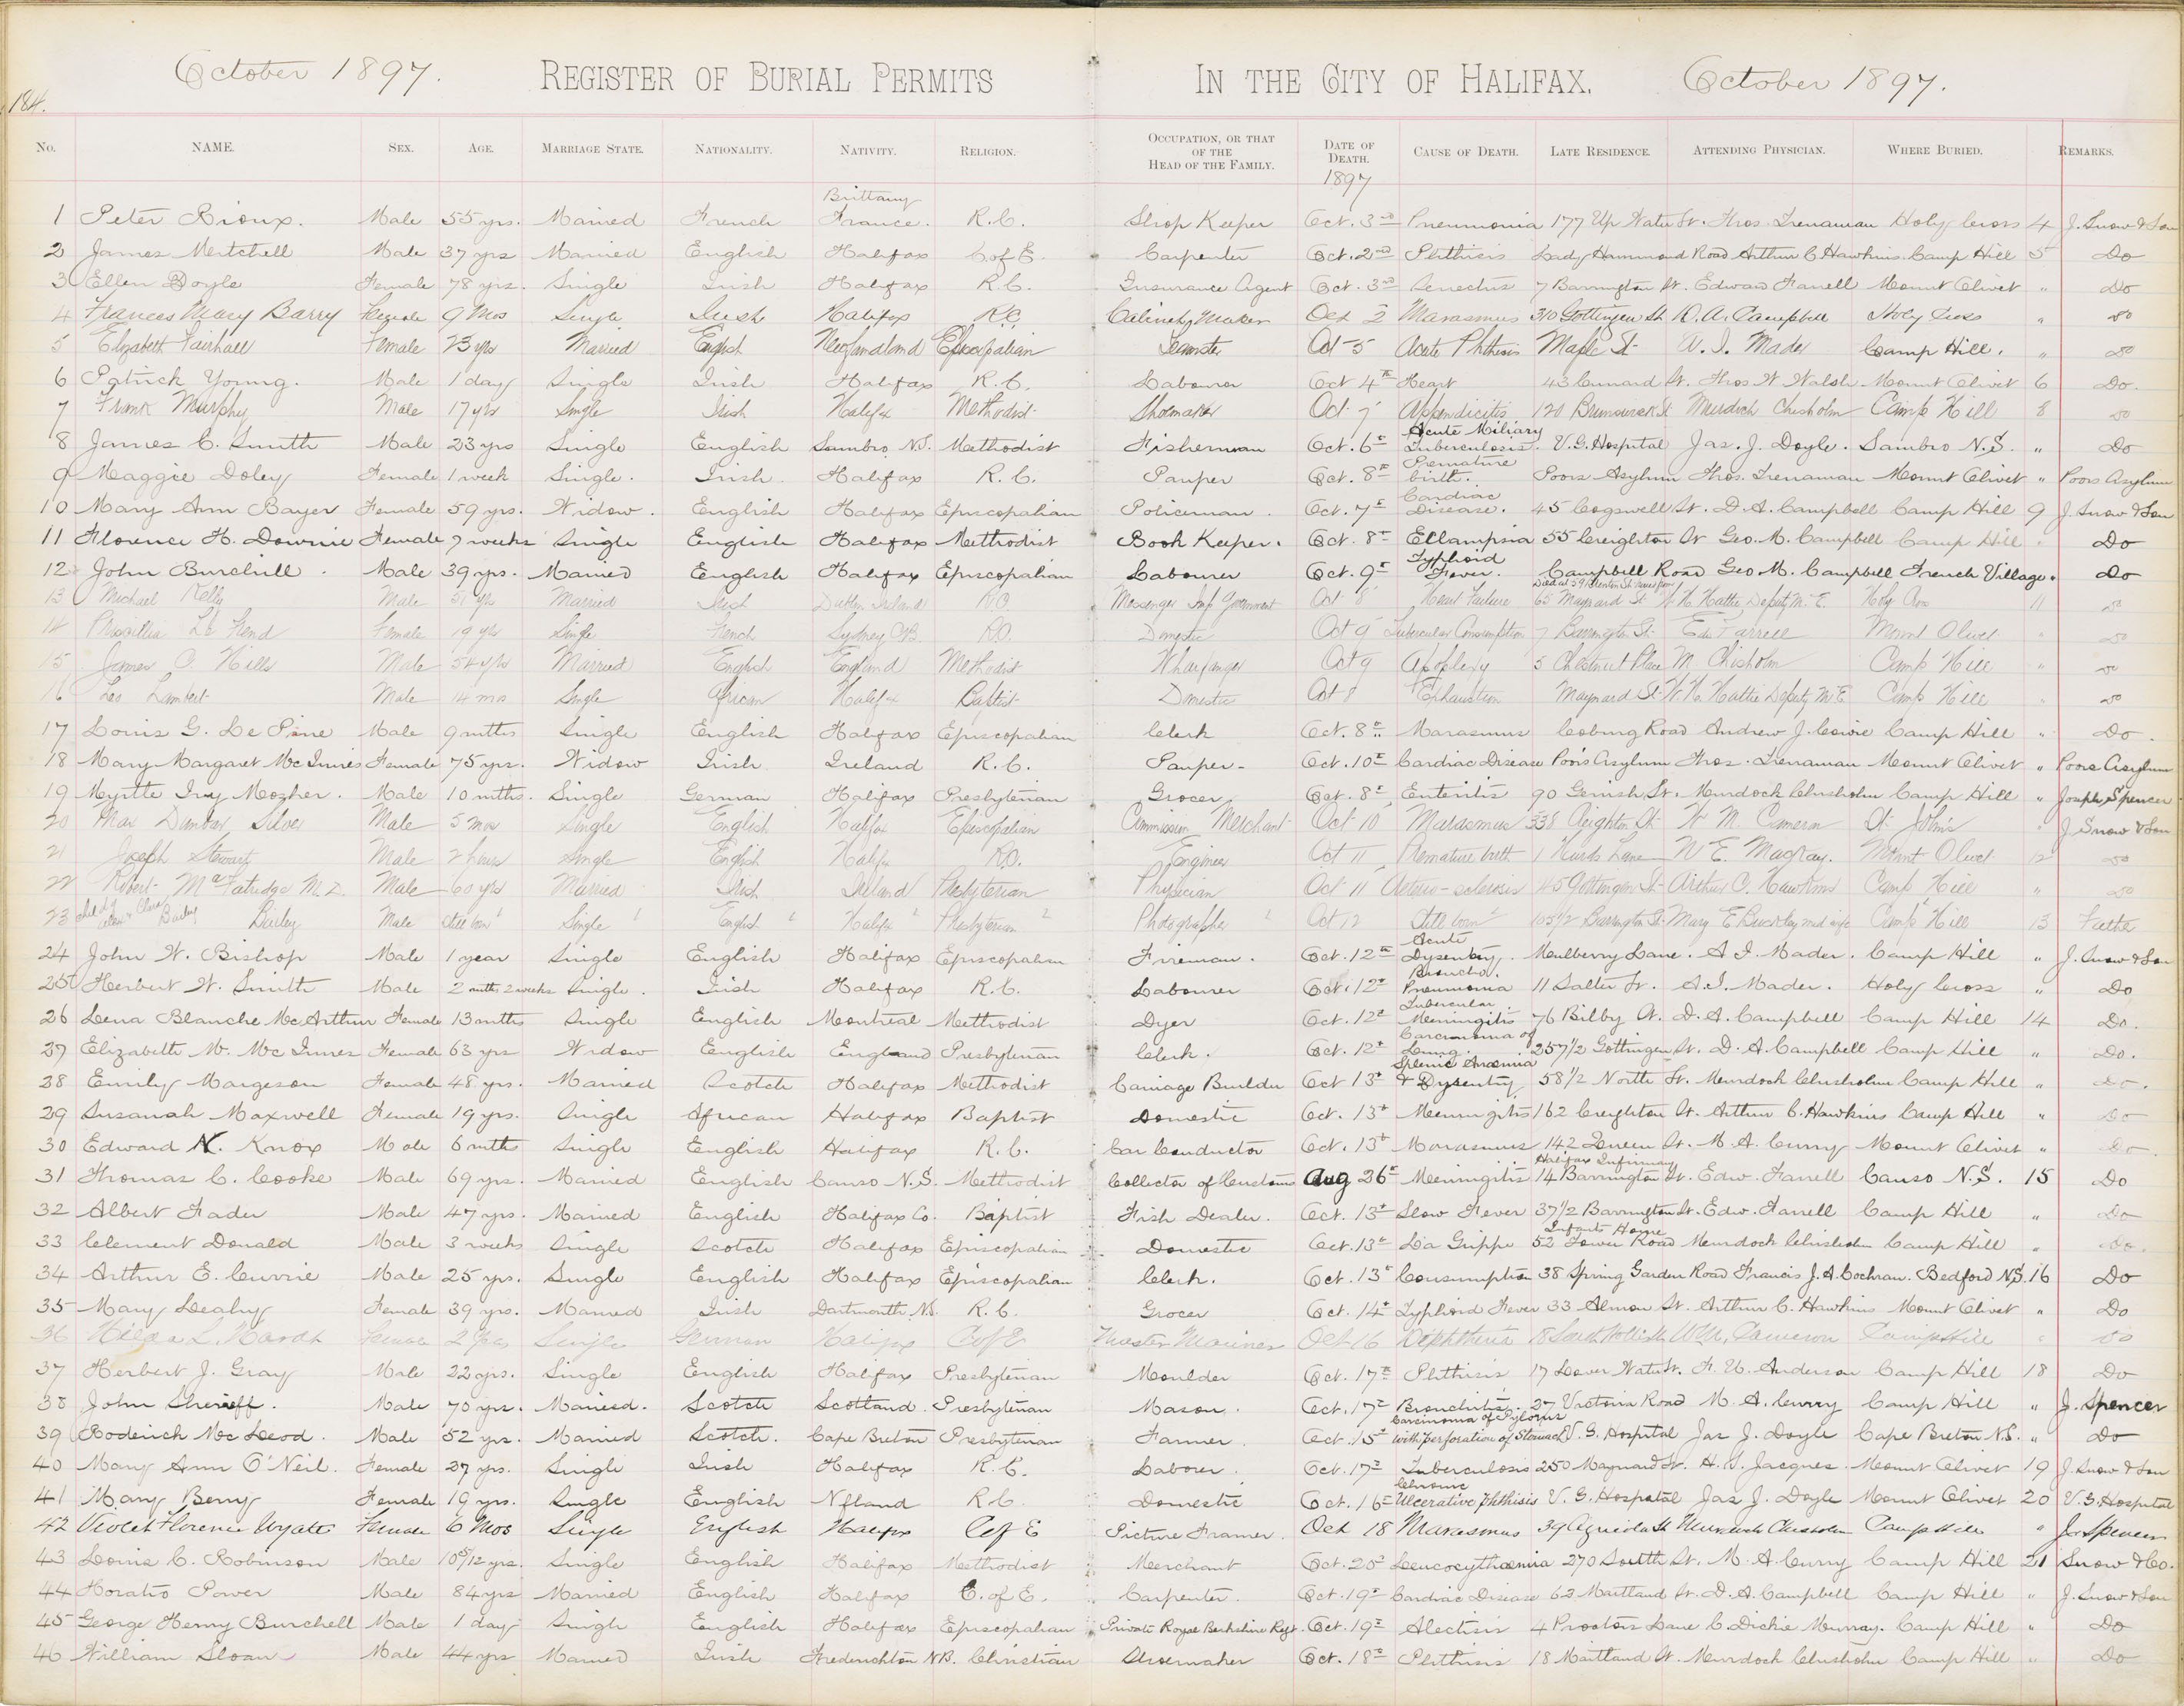 October 1897. REGISTER OF BURIAL PERMITS IN THE CITY OF HALIFAX. October 1897.
184.
No. NAME. SEX. AGE. MARRIAGE STATE. NATIONALITY. NATIVITY. RELIGION. OCCUPATION, OR THAT OF THE HEAD OF THE FAMILY. DATE OF DEATH. CAUSE OF DEATH. LATE RESIDENCE. ATTENDING PHYSICIAN. WHERE BURIED. REMARKS.
1897
1 Peter Rioux. Male 55 yrs. Married French Brittany France. R.C. Shop Keeper Oct. 3rd Pneumonia 177 Up Water St. Thos. Trenaman Holy Cross 4 J. Snow & Son
2 James Mitchell Male 37 yrs Married English Halifax C. of E. Carpenter Oct. 2nd Phthisis Lady Hammond Road Arthur C. Hawkins Camp Hill 5 Do
3 Ellen Doyle Female 78 yrs. Single Irish Halifax R.C. Insurance Agent Oct. 3rd Senectus 7 Barrington St. Edward Farrell Mount Olivet " Do
4 Frances Mary Barry Female 9 Mos Single Irish Halifax R.C. Cabinet Maker Oct 2 Marasmus 310 Gottingen St D. A. Campbell Holy Cross " Do
5 Elizabeth Fairhall Female 23 yrs Married English Newfoundland Episcopalian Teamster Oct 5 Acute Phthisis Maple St A. I. Mader Camp Hill. " Do
6 Patrick Young. Male 1 day Single Irish Halifax R.C. Labourer Oct 4th Heart 43 Cunard St. Thos W Walsh Mount Olivet 6 Do.
7 Frank Murphy Male 17 yrs Single Irish Halifax Methodist Shomaker Oct 7 Appendicitis 120 Brunswick St Murdoch Chisholm Camp Hill 8 Do
8 James C. Smith Male 23 yrs Single English Sambro, N.S. Methodist Fisherman Oct. 6th Acute Miliary Tuberculosis. V.G. Hospital Jas. J. Doyle. Sambro N.S. " Do
9 Maggie Doley Female 1 week Single. Irish Halifax R.C. Pauper Oct. 8th Premature birth. Poors Asylum Thos. Trenaman Mount Olivet " Poors Asylum
10 Mary Ann Bayer Female 59 yrs. Widow. English Halifax Episcopalian Policeman. Oct. 7th Cardiac Disease. 45 Cogswell St. D. A. Campbell Camp Hill 9 J. Snow & Son
11 Florence H. Downie Female 7 weeks Single English Halifax Methodist Book Keeper. Oct. 8th Eclampsia 55 Creighton St Geo. M. Campbell Camp Hill " Do
12 John Burchill. Male 39 yrs. Married English Halifax Episcopalian Labourer Oct. 9th Typhoid Fever. Campbell Road Geo M. Campbell French Village. " Do
13 Michael Kelly Male 51 yrs Married Irish Dublin Ireland R.C. Messenger Imp Government Oct 8 Heart Failure 65 Maynard St W. H. Hattie Deputy M.E. Holy Cross 11 Do
14 Priscillia Le Fiend Female 19 yrs Single French Sydney C.B. R.C. Domestic Oct 9 Tubercular Consumption 7 Barrington St. Edw Farrell Mount Olivet " Do
15 James C. Hills Male 54 yrs Married English England Methodist Wharfinger Oct 9 Apoplexy 5 Chestnut Place M Chisholm Camp Hill " Do
16 Leo Lambert Male 14 mos Single African Halifax Baptist Domestic Oct 8 Exhaustion Maynard St W. H. Hattie Deputy M.E. Camp Hill " Do
17 Louis G. Le Pine Male 9 mths Single English Halifax Episcopalian Clerk Oct. 8th Marasmus Coburg Road Andrew J. Cowie Camp Hill " Do.
18 Mary Margaret Mc Innes Female 75 yrs. Widow Irish Ireland R.C. Pauper- Oct. 10th Cardiac Disease Poors Asylum Thos. Trenaman Mount Olivet " Poors Asylum
19 Myrtle Ivy Mozher. Male 10 mths. Single German Halifax Presbyterian Grocer Oct. 8th Enteritis 90 Gerrish St. Murdock Chisholm Camp Hill " Joseph Spencer
20 Max Dunbar Silver Male 5 mos Single English Halifax Episcopalian Commission Merchant Oct 10 Marasmus 338 Creighton St W M Cameron St Johns " J Snow & Son
21 Joseph Stewart Male 2 hours Single English Halifax R.C. Engineer Oct 11 Premature birth 1 Hurds Lane W E. Magray. Mount Olivet 12 Do
22 Robert McFatridge M.D. Male 60 yrs Married Irish Ireland Presbyterian Physician Oct 11 Arterio-sclerosis 45 Gottingen St Arthur C. Hawkins Camp Hill " Do
23 child of Clara Burley Burley Male Still born Single English Halifax Presbyterian Photographer Oct 12 Still born 105 1/2 Barrington St Mary E Buckley mid wife Camp Hill 13 Father
24 John W. Bishop Male 1 year Single English Halifax Episcopalian Fireman. Oct. 12th Acute Dysentery. Mulberry Lane. A I. Mader. Camp Hill " J. Snow & Son
25 Herbert W. Smith Male 2 mths 2 weeks Single. Irish Halifax R.C. Labourer Oct. 12th Broncho. Pneumonia 11 Salter St. A. I. Mader. Holy Cross " Do
26 Lena Blanche McArthur Female 13 mths Single English Montreal Methodist Dyer Oct. 12th Tubercular Meningitis 76 Bilby St. D. A. Campbell Camp Hill 14 Do.
27 Elizabeth M. Mc Innes Female 63 yrs Widow English England Presbyterian Clerk. Oct. 12th Carcinoma of Lung. 257 1/2 Gottingen St. D. A. Campbell Camp Hill " Do.
28 Emily Margeson Female 48 yrs. Married Scotch Halifax Methodist Carriage Builder Oct 13th Splenic Anaemia & Dysentry 58 1/2 North St. Murdock Chisholm Camp Hill " Do.
29 Susanah Maxwell Female 19 yrs. Single African Halifax Baptist Domestic Oct. 13th Meningitis 162 Creighton St. Arthur C. Hawkins Camp Hill " Do
30 Edward N. Knox Male 6 mths Single English Halifax R.C. Car Conductor Oct. 13th Marasmus 142 Queen St. M. A. Curry Mount Olivet " Do.
31 Thomas C. Cooke Male 69 yrs. Married English Canso N.S. Methodist Collector of Customs Aug 26th Meningitis Halifax Infirmary 14 Barrington St. Edw. Farrell Canso N.S. 15 Do
32 Albert Fader Male 47 yrs. Married English Halifax Co. Baptist Fish Dealer. Oct. 13th Slow Fever 37 1/2 Barrington St. Edw. Farrell Camp Hill " Do
33 Clement Donald Male 3 weeks Single Scotch Halifax Episcopalian Domestic Oct. 13th La Grippe Infants Home 52 Tower Road Murdock Chisholm Camp Hill " Do.
34 Arthur E. Currie Male 25 yrs. Single English Halifax Episcopalian Clerk. Oct. 13th Consumption 38 Spring Garden Road Francis J. A. Cochran. Bedford N.S. 16 Do
35 Mary Leahy Female 39 yrs. Married Irish Dartmouth N.S. R.C. Grocer Oct. 14th Typhoid Fever 33 Almon St. Arthur C. Hawkins Mount Olivet " Do
36 Hilda L. Female 2 Single German Halifax C of E Master Mariner Oct 16 Diphtheria 18 South Hollis St W. M. Cameron Camp Hill " Do
37 Herbert J. Gray Male 22 yrs. Single English Halifax Presbyterian Moulder Oct. 17th Phthisis 17 Lower Water St. F. U. Anderson Camp Hill 18 Do
38 John Sherieff. Male 70 yrs. Married. Scotch Scotland. Presbyterian Mason. Oct. 17th Bronchitis. 27 Victoria Road M. A. Curry Camp Hill " J. Spencer
39 Roderick Mc Leod. Male 52 yrs. Married Scotch. Cape Breton Presbyterian Farmer. Oct. 15th Carcinoma of Pylorus with perforation of Stomach V. G. Hospital Jas J. Doyle Cape Breton N.S. " Do
40 Mary Ann O'Neil. Female 27 yrs. Single Irish Halifax R.C. Laborer. Oct. 17th Tuberculosis 250 Maynard St. H. S. Jacques. Mount Olivet 19 J. Snow & Son
41 Mary Berry Female 19 yrs. Single English Nfland R.C. Domestic Oct. 16th Chronic Ulcerative Phthisis V. G. Hospital Jas J. Doyle Mount Olivet 20 V. G. Hospital
42 Violet Florence Wyatt Female 6 Mos Single English Halifax C of E Picture Framer. Oct 18 Marasmus 39 Agricola St Murdoch Chisholm Camp Hill " J. Spencer
43 Louis C. Robinson Male 10 5/12 yrs. Single English Halifax Methodist Merchant Oct. 20th Leucocythaemia 270 South St. M. A. Curry Camp Hill 21 Snow & Co.
44 Horatio Power Male 84 yrs Married English Halifax C. of E. Carpenter. Oct. 19th Cardiac Disease 62 Maitland St. D. A. Campbell Camp Hill " J. Snow & Son
45 George Henry Burchell Male 1 day Single English Halifax Episcopalian Private Royal Berkshire Regt. Oct. 19th Alectisis 4 Proctors Lane C. Dickie Murray. Camp Hill " Do
46 William Sloan Male 44 yrs Married Irish Frederichton N.B. Christian Shoemaker Oct. 18th Phthisis 18 Maitland St. Murdoch Chisholm Camp Hill " Do